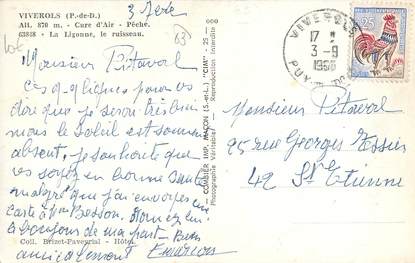 VIVEROLS (P.-de-D.)
Alt. 870 m. - Cure d'Air - Pêche.
63838 - La Ligonne, le ruisseau.
63
Monsieur Pitaval
Ces q. q. lignes pour vous
dire que je serai très bien
mais le soleil est souvent
absent, je souhaite que
vous soyez en bonne santé
malgré que j'ai envoyé une
carte à Mme Besson. donnez lui
le bonjour de ma part - Bien
amicalement
Coll. Brizet-Paveyrial - Hôtel
COMBIER IMP. MACON (S.-et-L.) "CIM" - 25 -
Photographie Véritable - Reproduction Interdite
VIVEROLS
17
3-9
PUY DE
0,25
Monsieur Pitaval
95 rue Georges Tessier
42 St Etienne